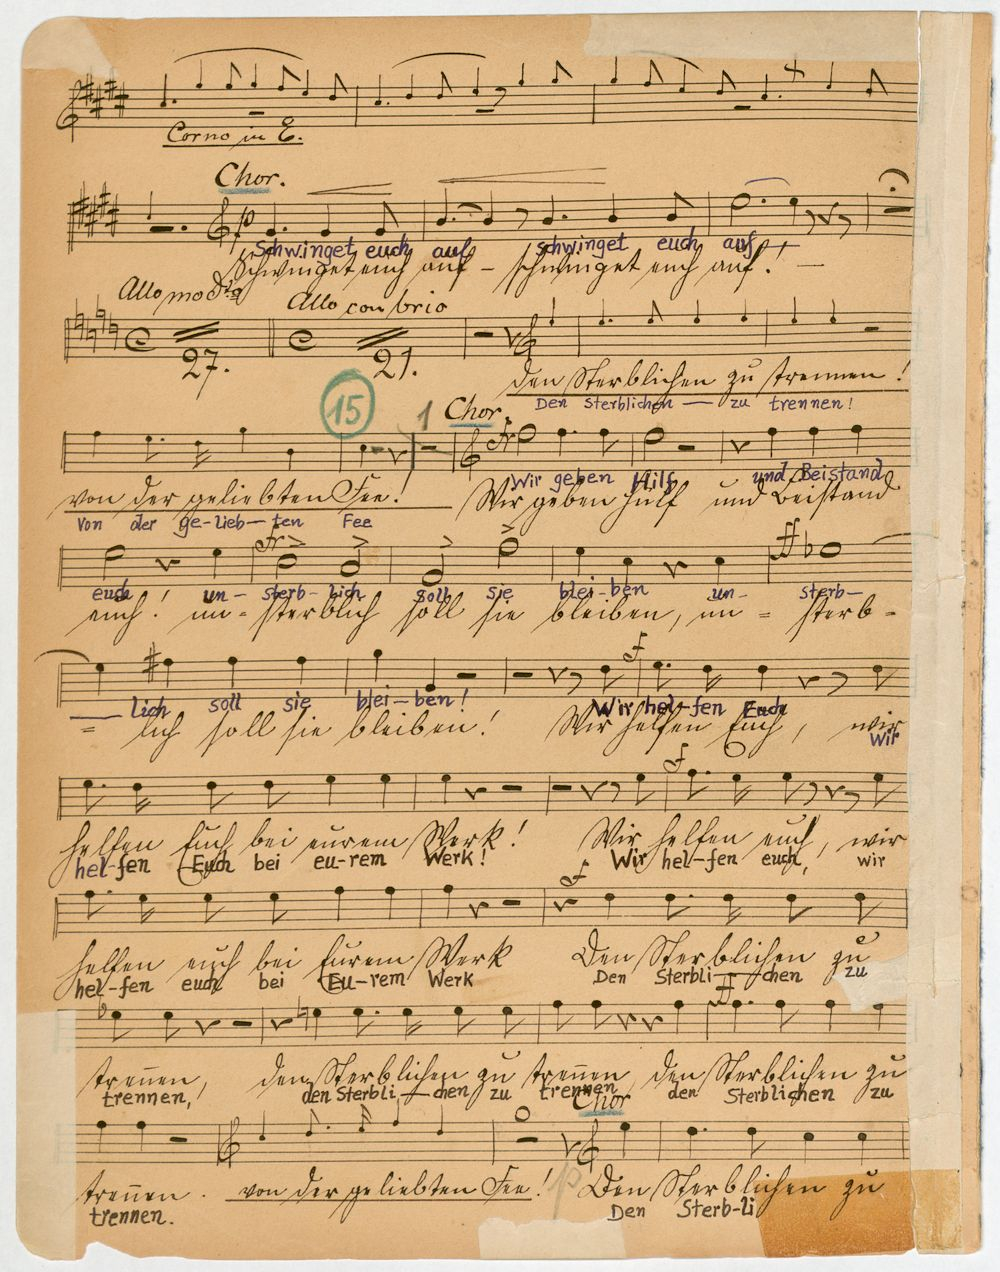 Corno in E.
Chor.
p
Schwinget euch auf schwinget euch auf –
Schwinget euch auf – schwinget euch auf! –
Allo mod.to Allo con brio
27. 21.
den Sterblichen zu trennen!
Den Sterblichen — zu trennen!
15 1 Chor.
Wir geben Hilf und Beistand
von der geliebten Fee! Wir geben Hülf und Beistand
Von der ge-lieb-ten Fee
euch un- sterb-lich soll sie blei-ben un- sterb-
euch! un-sterblich soll sie bleiben, un = sterb-
f
— lich soll sie blei-ben! Wir hel-fen Euch
= lich soll sie bleiben! Wir helfen Euch, wir
Wir
f
helfen Euch bei eurem Werk! Wir helfen euch, wir
hel-fen Euch bei eu-rem Werk! Wir hel-fen euch, wir
f
helfen euch bei Eurem Werk Den Sterblichen zu
hel-fen euch bei Eu-rem Werk Den Sterbli—chen zu
ff
trennen, den Sterblichen zu trennen, den Sterblichen zu
trennen, den Sterbli,—chen zu trennen den Sterblichen zu
Chor
p
trennen. von der geliebten Fee! Den Sterblichen zu
trennen. Den Sterb-li